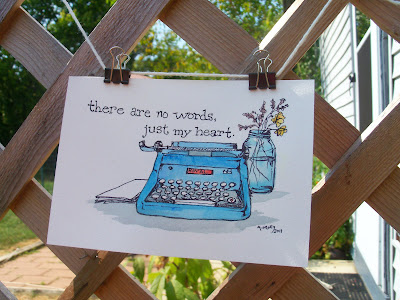 there are no words,
just my heart.